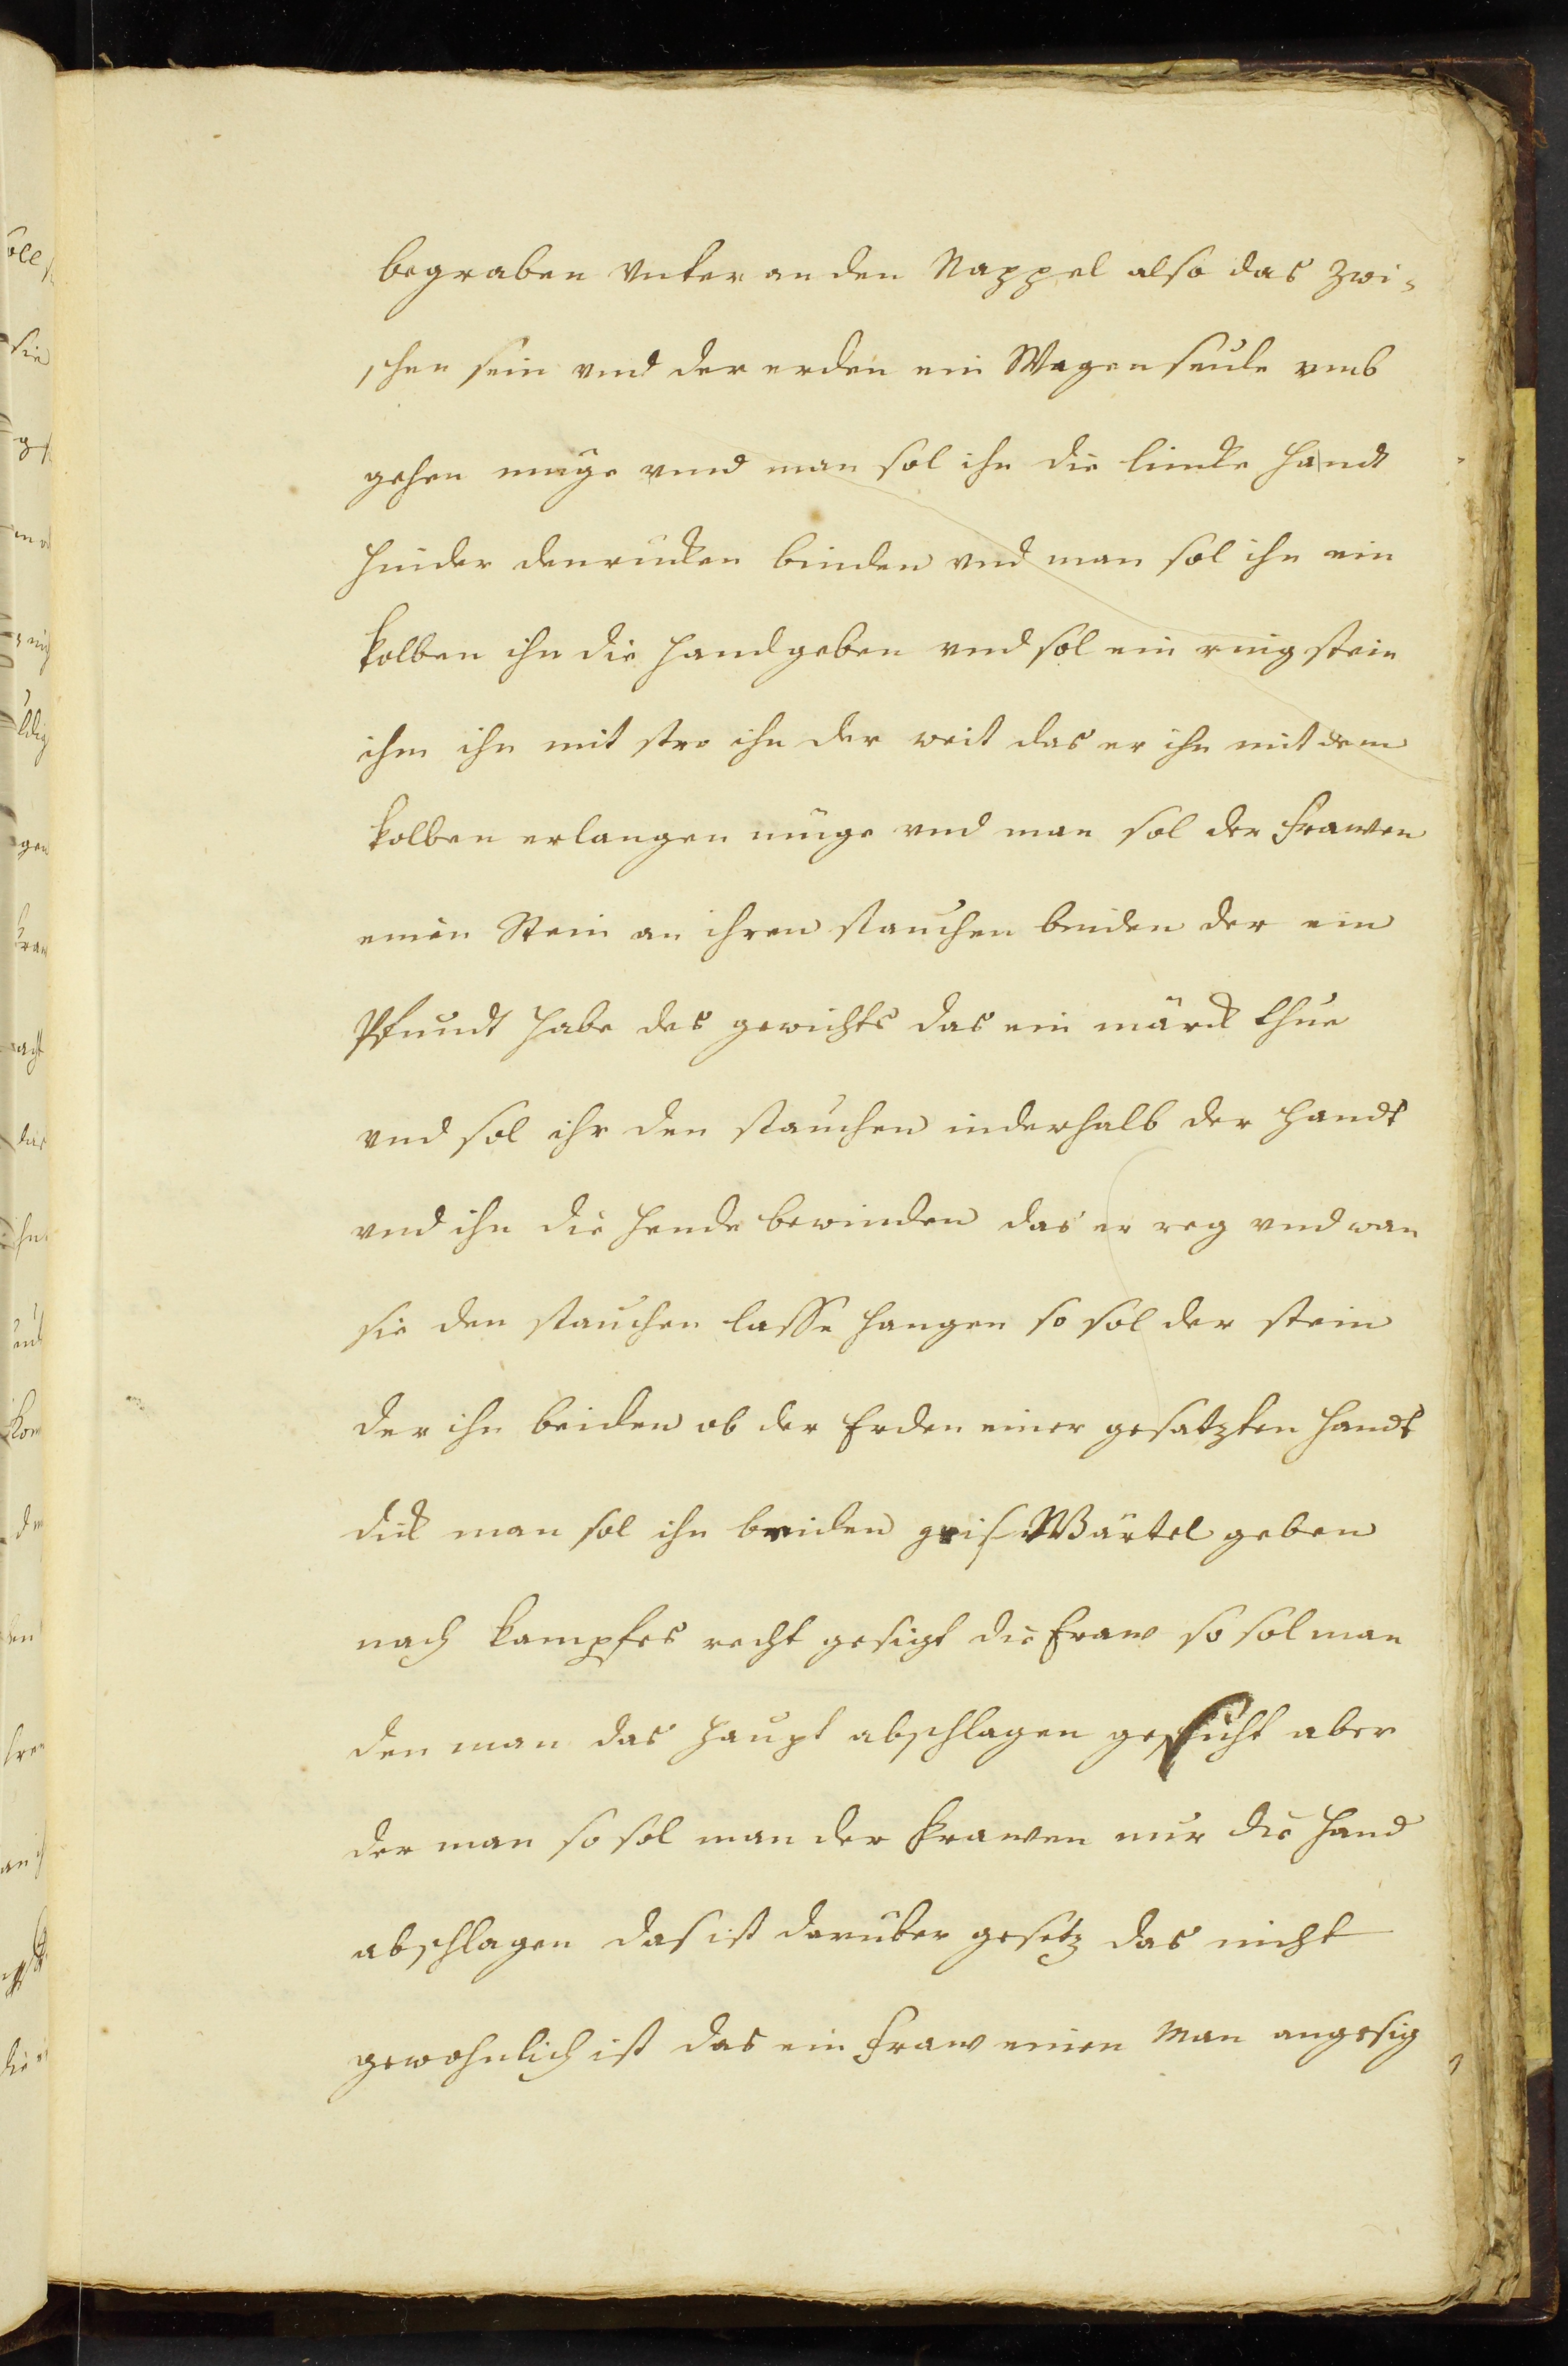 begraben vnter an den Nappel also das zwi-
schen sein vnd der erden ein Wagenseule vmb
gehen muge vnnd man sol ihn die lincke handt
hinder den rucken binden vnd man sol ihn ein
kolben ihn die hand geben vnd sol ein ring stein
ihm ihn mit stro ihn der weit das er ihn mit dem
kolben erlangen muge vnd man sol der frawen
einen Stein an ihren stauchen binden der ein
Pfundt habe des gewichts das ein märck thue
vnd sol ihr den stauchen inderhalb der handt
vnd ihn die hende bewinden das er reg vnd wan
sie den stauchen lasse hangen so sol der stein
der ihn beiden ob der Erden einer gesatzten handt
dick man sol ihn beiden gris Wärtel geben
nach kampfes recht gesigt die fraw so sol man
den man das haupt abschlagen gesicht aber
der man so sol man der frawen nur die hand
abschlagen das ist darüber gesetz das nicht
gewohnlich ist das ein fraw einen Man angesig